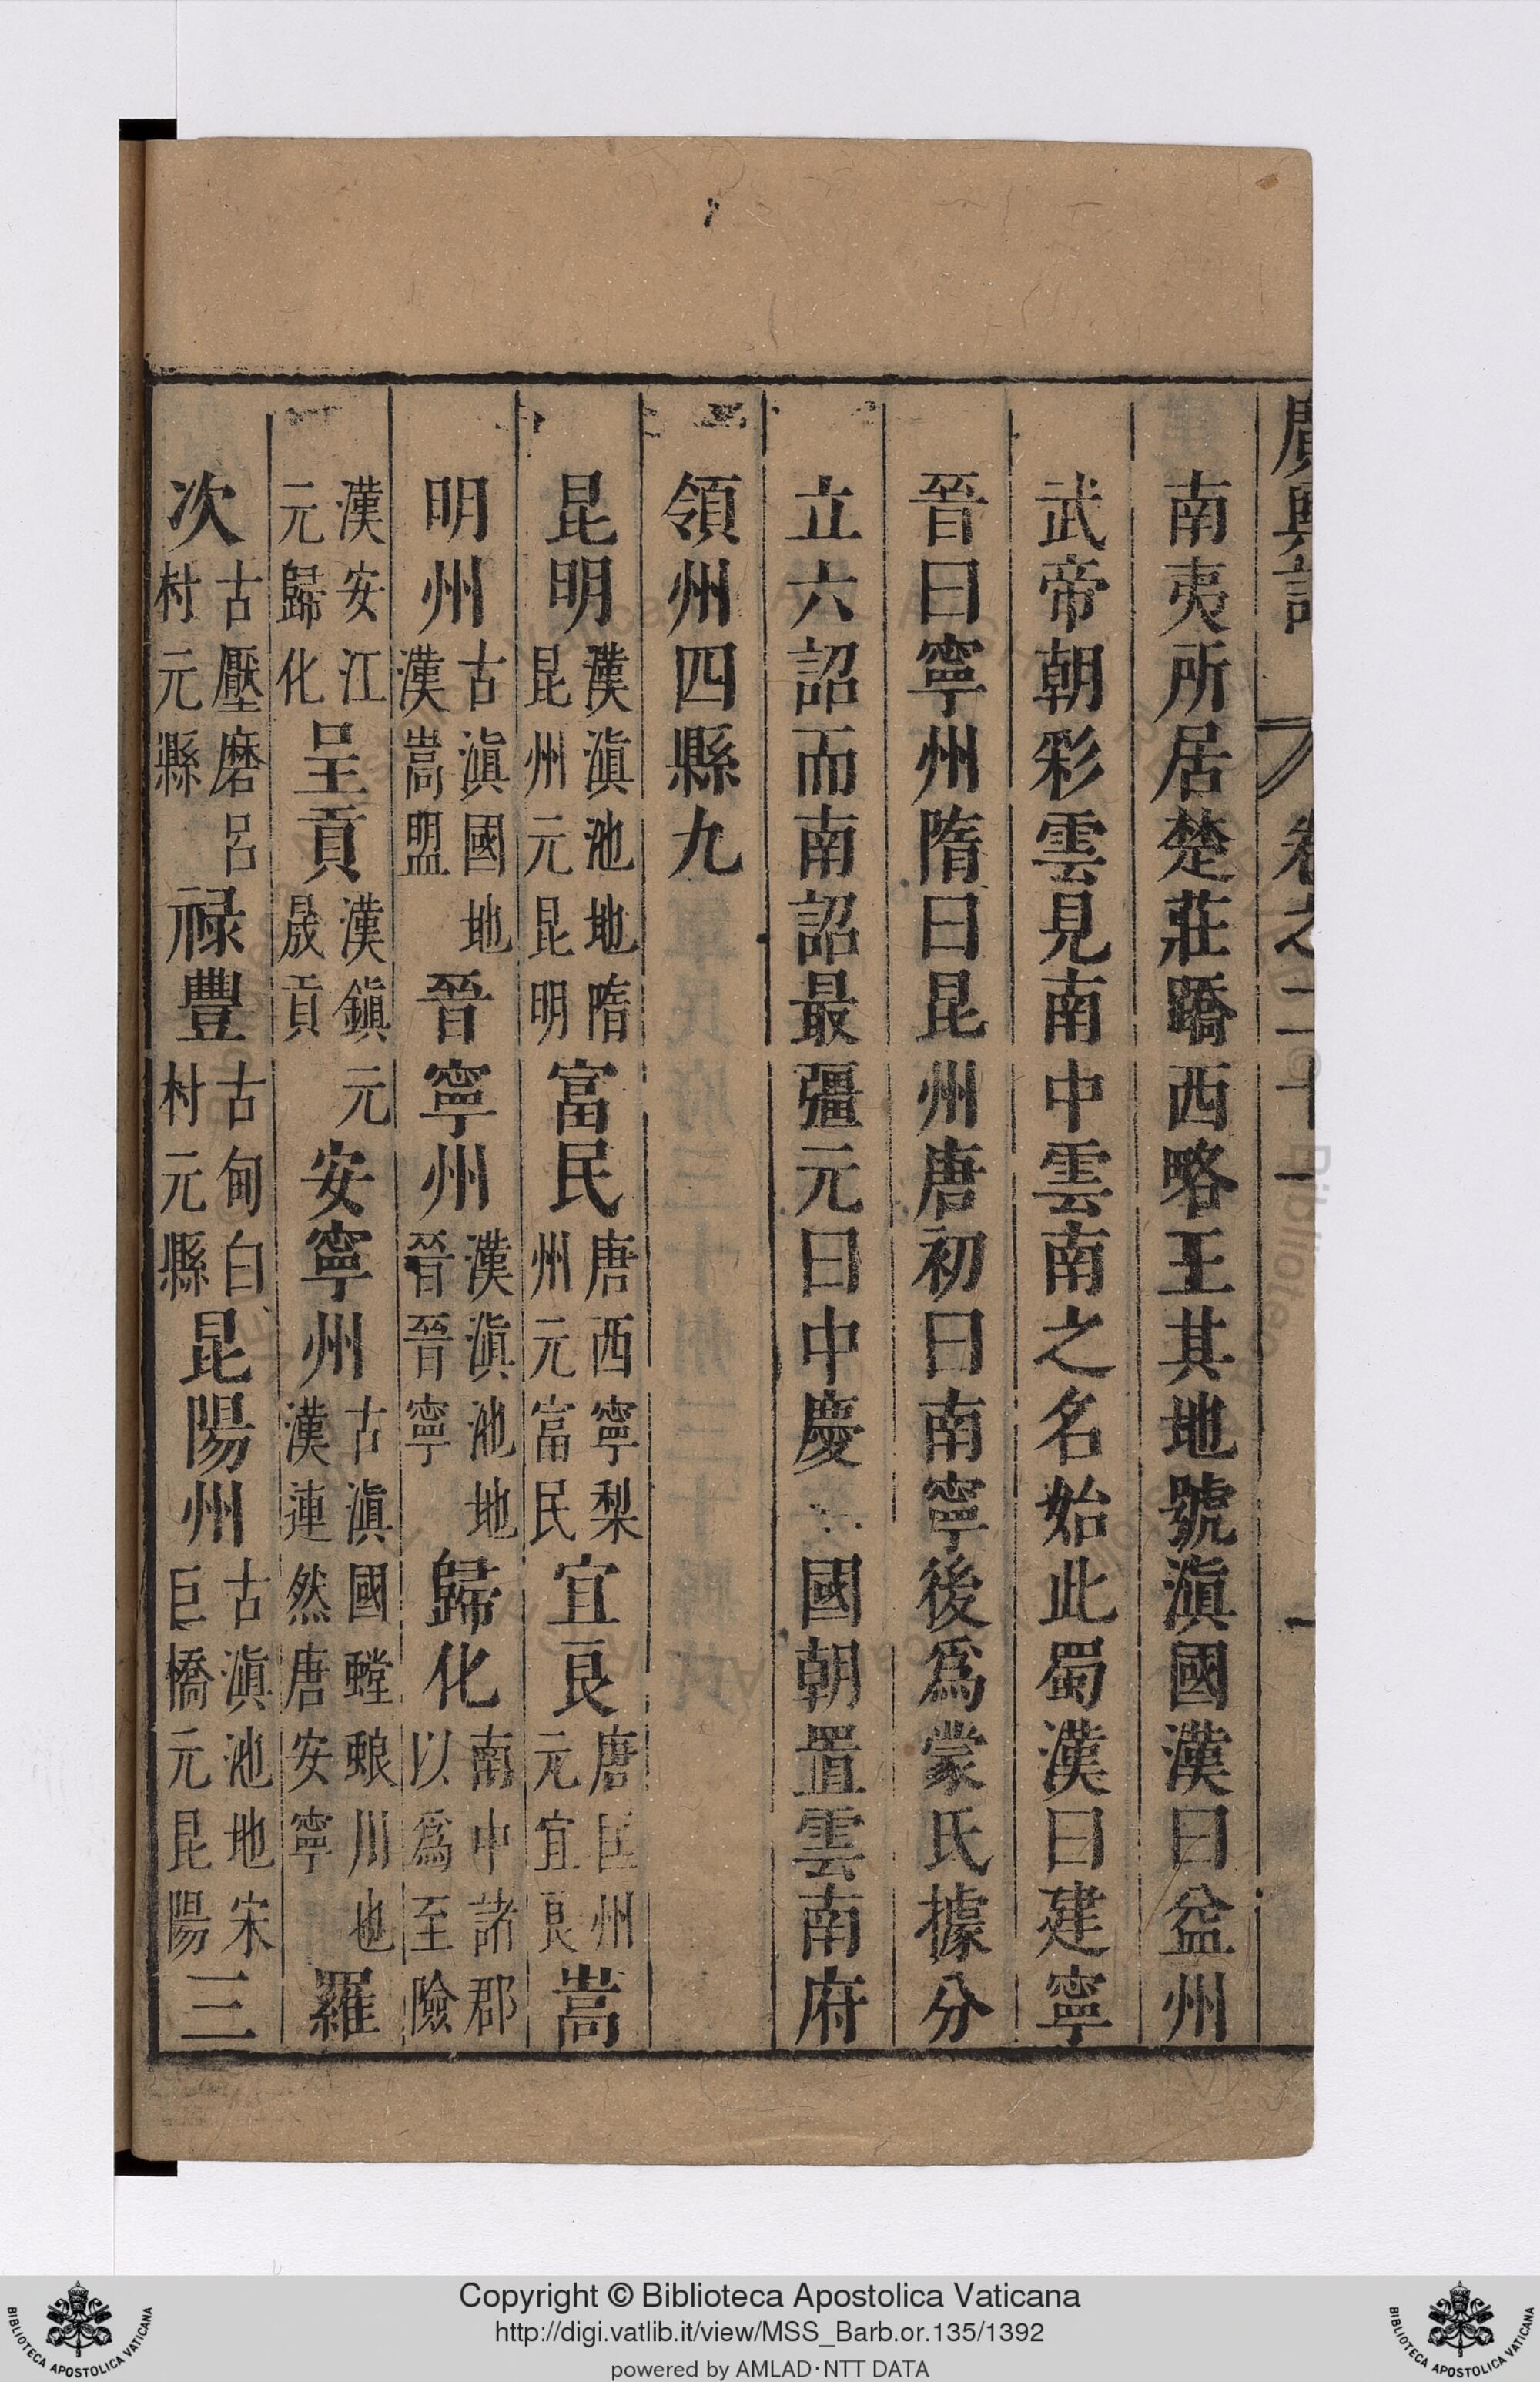 廣輿記 卷之二十一 一
南夷所居楚莊蹻西略王其地號滇國漢曰益州
武帝朝彩雲見南中雲南之名始此蜀漢曰建寧
晉曰寧州隋曰昆州唐初曰南寧後爲蒙氏據分
立六詔而南詔最彊元曰中慶 國朝置雲南府
領州四縣九
昆明漢滇池地隋昆州元昆明富民唐西寧梨州元富民宜良唐匡州元宜良嵩
明州古滇國地漢嵩盟晉寧州漢滇池地晉晉寧歸化南中諸郡以爲至險
漢安江元歸化呈貢漢鎭元晟貢安寧州古滇國螳螂川也漢連然唐安寧羅
次古壓磨呂村元縣祿豐古甸白村元縣昆陽州古滇池地宋巨橋元昆陽三
Copyright © Biblioteca Apostolica Vaticana
http://digi.vatlib.it/view/MSS_Barb.or.135/1392
powered by AMLAD·NTT DATA
BIBLIOTECA APOSTOLICA VATICANA
BIBLIOTECA APOSTOLICA VATICANA